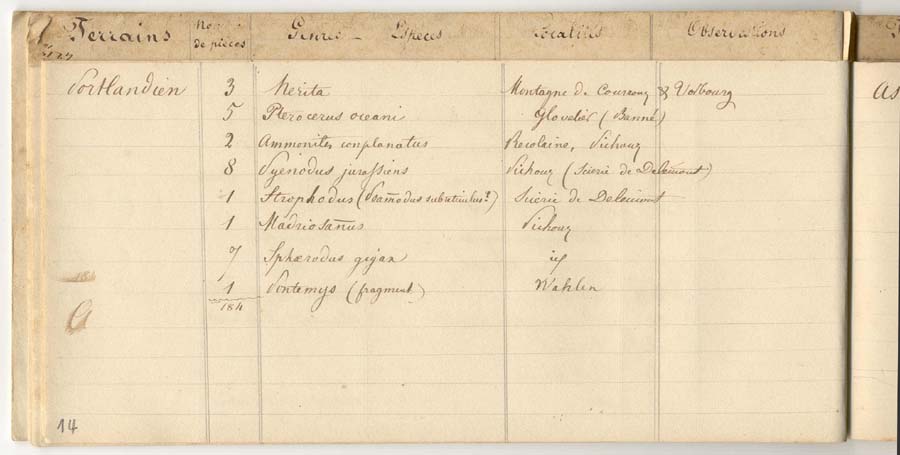 Terrains No. de pièces Genres - Espèces Localités Observations
Portlandien 3 Nerita Montagne de Courroux & Vorbourg
5 Pterocerus oceani Glovelier (Banné)
2 Ammonites conplanatus Recolaine, Pichoux
8 Pycnodus jurassiens Pichoux (Scierie de Delémont)
1 Strophodus (Psamodus subutculus?) Scierie de Delémont
1 Madriosaurus Pichoux
7 Sphærodus gigan id
1 Pontemys (fragment) Wahlen
184
14
as